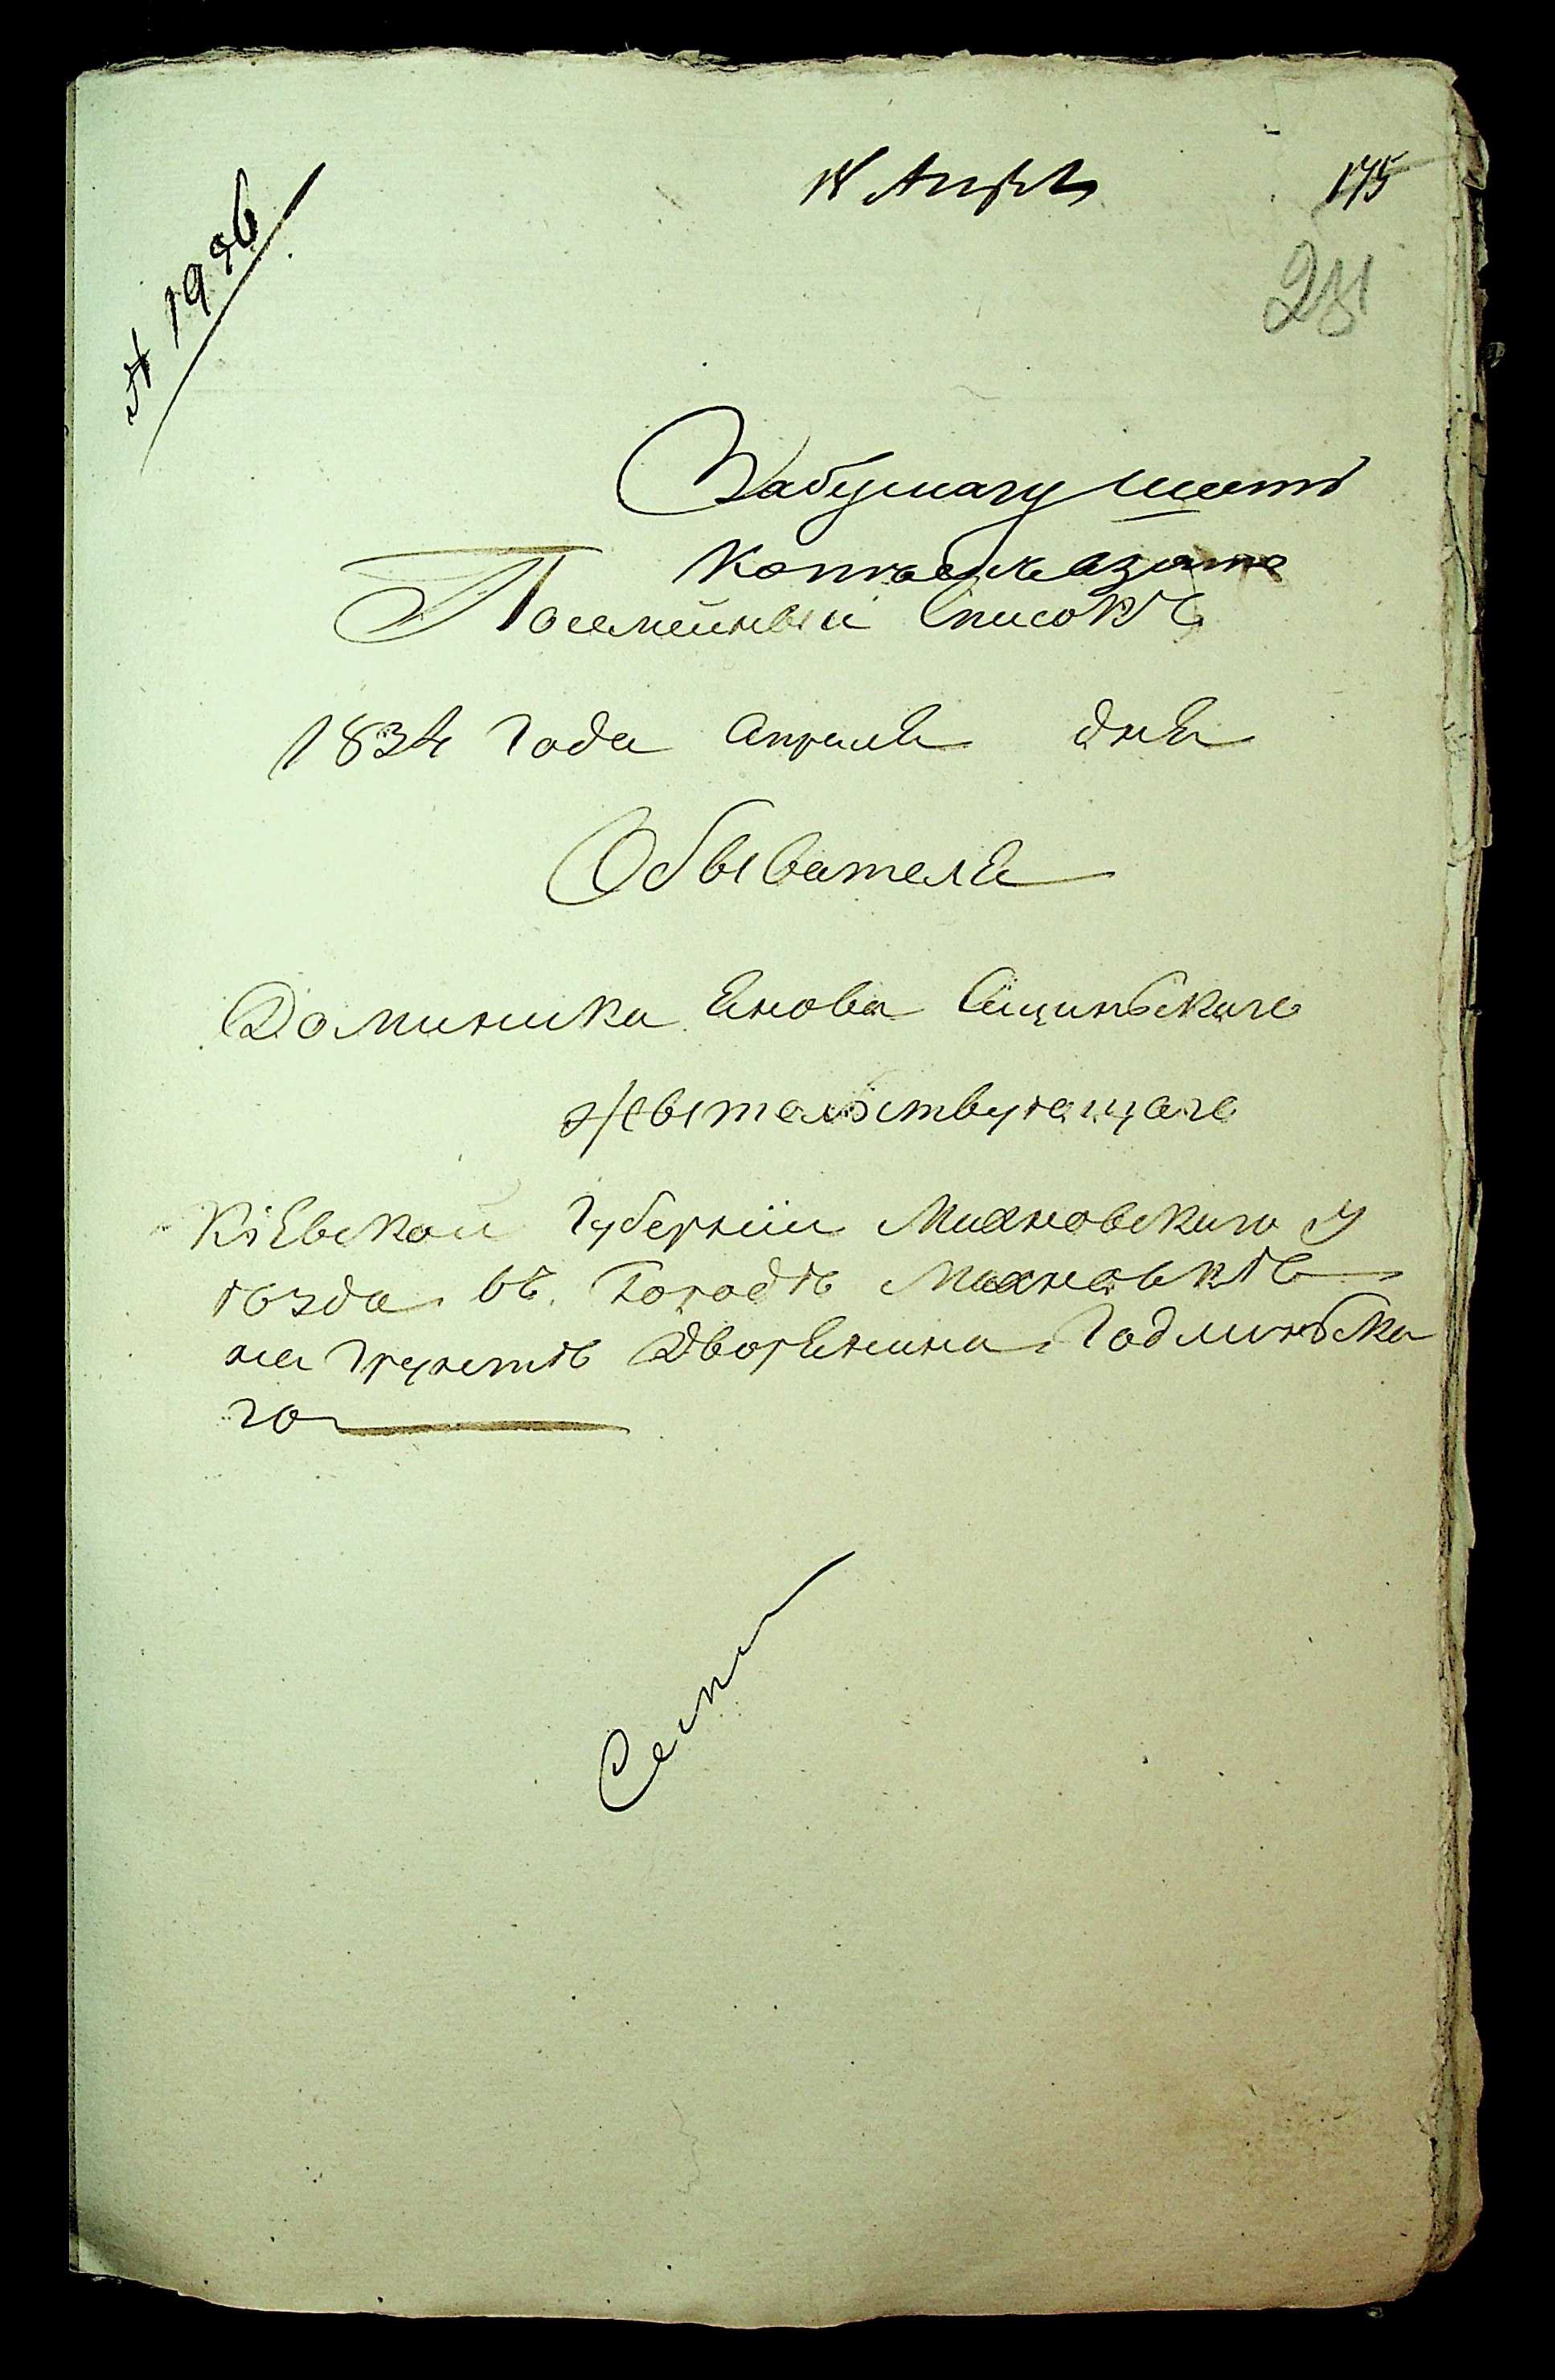 18 Апрѣл 175
№ 1986
281
За бумагу шесть
копѣекъ взято
Посемейный Списокъ
1834 года апреля дня
Обывателя
Доминика Янова Сищинскаго
жытельствующаго
Кіевской губерніи Махновского у
ѣзда въ Городѣ Махновкѣ
на грунтѣ Дворянина Годлиньска
го